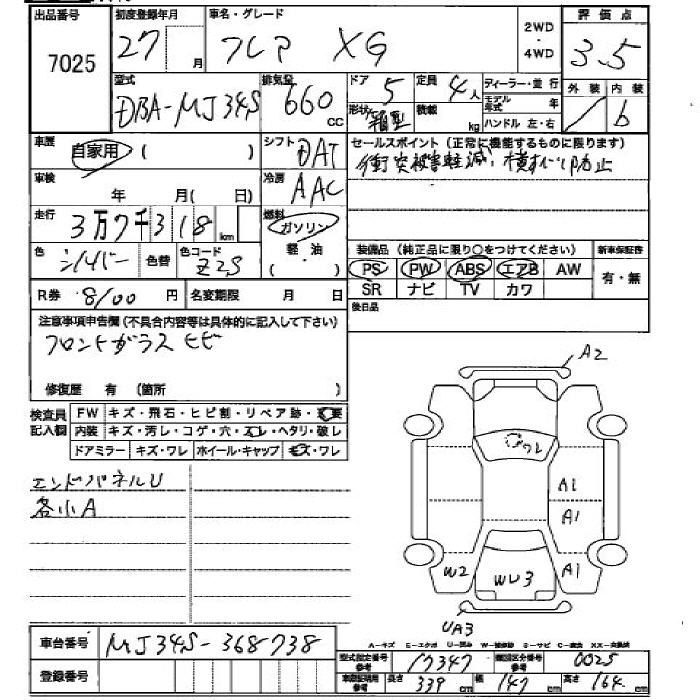 出品番号 初度登録年月 車名・グレード 2WD・4WD 評価点
7025 27 月 フレア XG 3.5
型式 排気量 ドア 定員 ディーラー・並行 外装 内装
DBA-MJ34S 660 cc 5 4人 モデル年式 年 b
形状 箱型 積載 kg ハンドル 左・右
車歴 自家用 ( ) シフト DAT セールスポイント (正常に機能するものに限ります)
衝突被害軽減、横すべり防止
車検 年 月( 日) 冷房 AAC
走行 3万7千318km 燃料 ガソリン
軽油
( )
色 シルバー 色替 色コード Z2S
装備品 (純正品に限り○をつけてください) 新車保証書
PS PW ABS エアB AW 有・無
SR ナビ TV カワ
R券 8100 円 名変期限 月 日 後日品
注意事項申告欄 (不具合内容等は具体的に記入して下さい)
フロントガラス ヒビ
修復歴 有 (箇所 )
検査員記入欄 FW キズ・飛石・ヒビ割・リペア跡・交要
内装 キズ・汚レ・コゲ・穴・スレ・ヘタリ・破レ
ドアミラー キズ・ワレ ホイール・キャップ キズ・ワレ
エンドパネルU
各小A
A2
ワレ
A1
A1
W2 WU3 A1
UA3
A-キズ E-エクボ U-凹み W-補修跡 S-サビ C-腐食 XX-交換済
車台番号 MJ34S-368738
登録番号
型式指定番号 参考 17347 類別区分番号 参考 0025
車庫証明用 参考 長さ 339 cm 幅 147 cm 高さ 164 cm